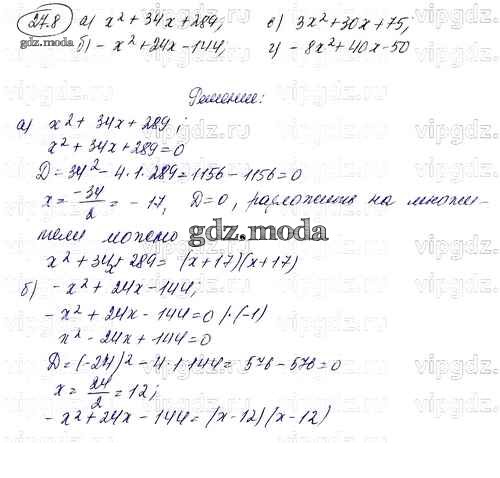 27.8 а) x² + 34x + 289; в) 3x² + 30x + 75;
gdz.moda б) - x² + 24x - 144; г) - 8x² + 40x - 50
Решение:
а) x² + 34x + 289;
x² + 34x + 289 = 0
D = 34² - 4·1·289 = 1156 - 1156 = 0
x = -34/2 = - 17, D = 0, разложить на множи-
тели можно
gdz.moda
x² + 34x + 289 = (x+17)(x+17)
б) - x² + 24x - 144;
- x² + 24x - 144 = 0 |·(-1)
x² - 24x + 144 = 0
D = (-24)² - 4·1·144 = 576 - 576 = 0
x = 24/2 = 12;
- x² + 24x - 144 = (x-12)(x-12)
vipgdz.ru